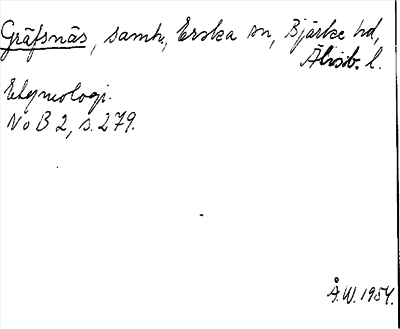 Gräfsnäs, samh, Erska sn, Bjärke hd,
Älvsb. l.
Etymologi.
NoB 2, s. 279.
Å.W. 1954.